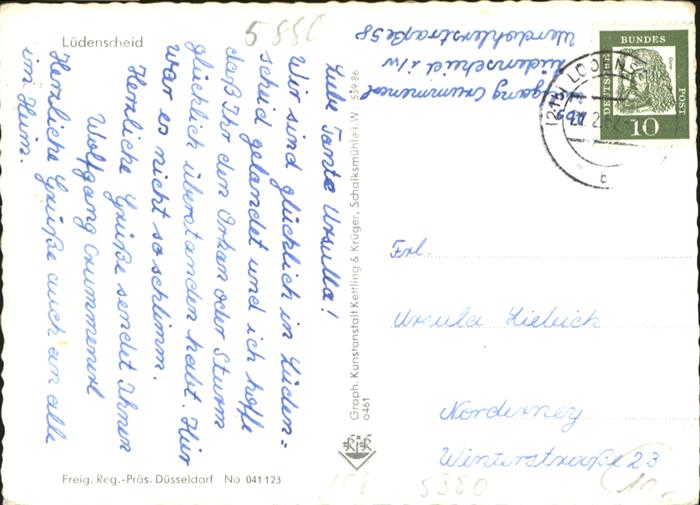 Lüdenscheid
Liebe Tante Ursulla!
Wir sind glücklich in Lüden=
scheid gelandet und ich hoffe
daß Ihr den Orkan oder Sturm
glücklich überstanden habt. Hier
war es nicht so schlimm.
Herzliche Grüße sendet Ihnen
Wolfgang Crummenerl
Herzliche Grüße auch an alle
im Heim.
Freig. Reg.-Präs. Düsseldorf No 041 123
Graph. Kunstanstalt Kettling & Krüger, Schalksmühle i.W. 539.86
a461
Wolfgang Crummenerl
Lüdenscheid i/W
Werdohlerstraße 58
DEUTSCHE
BUNDES
POST
10
Frl.
Ursula Liebich
Norderney
Winterstraße 23
5880
5880
10,-